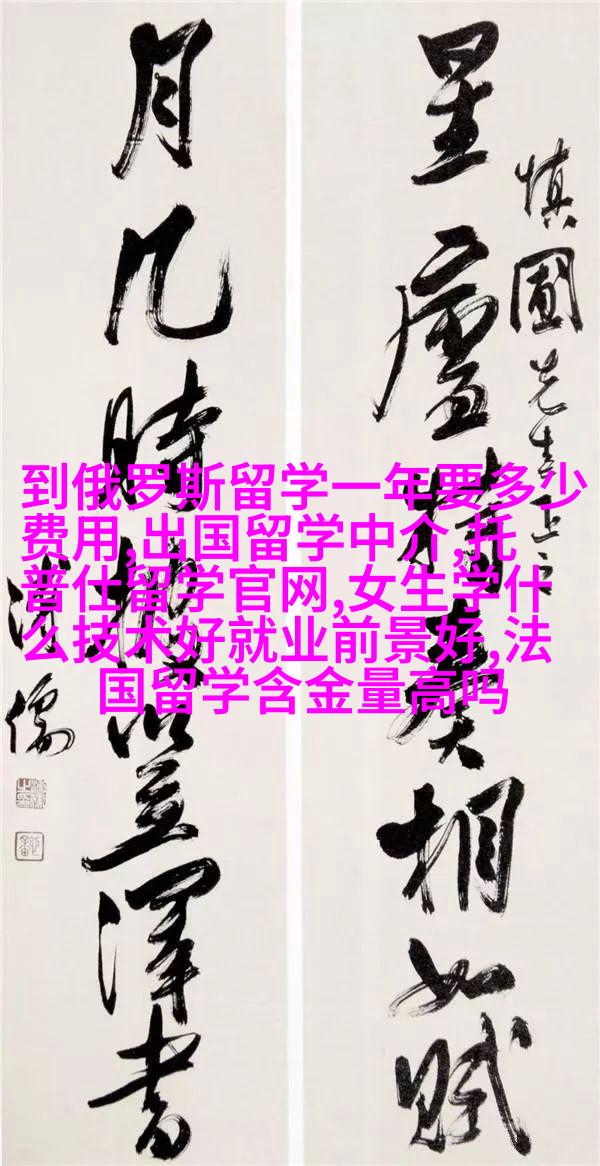 星廬奏相如賦
慎圃先生正之
月几時笠澤書
溥儒
到俄罗斯留学一年要多少
费用,出国留学中介,托
普仕留学官网,女生学什
么技术好就业前景好,法
国留学含金量高吗